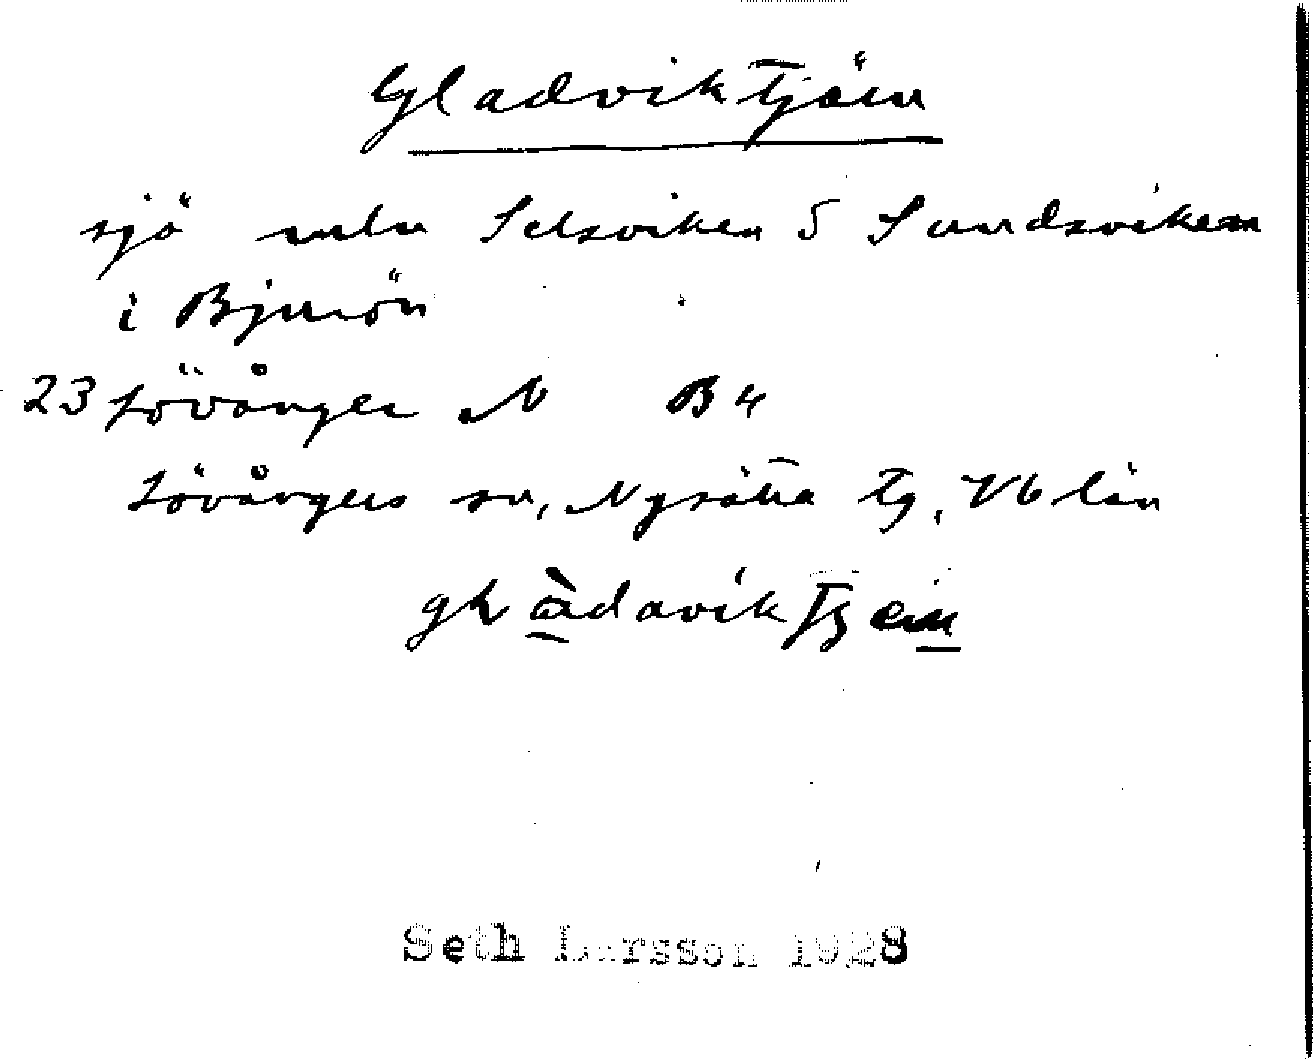 Gladviktjärn
sjö mln Selsviken o Sundsviken
i Bjurön
23 Lövånger N B 4
Lövångers sn, Nysätra tg, Vb län
Seth Larsson 1928